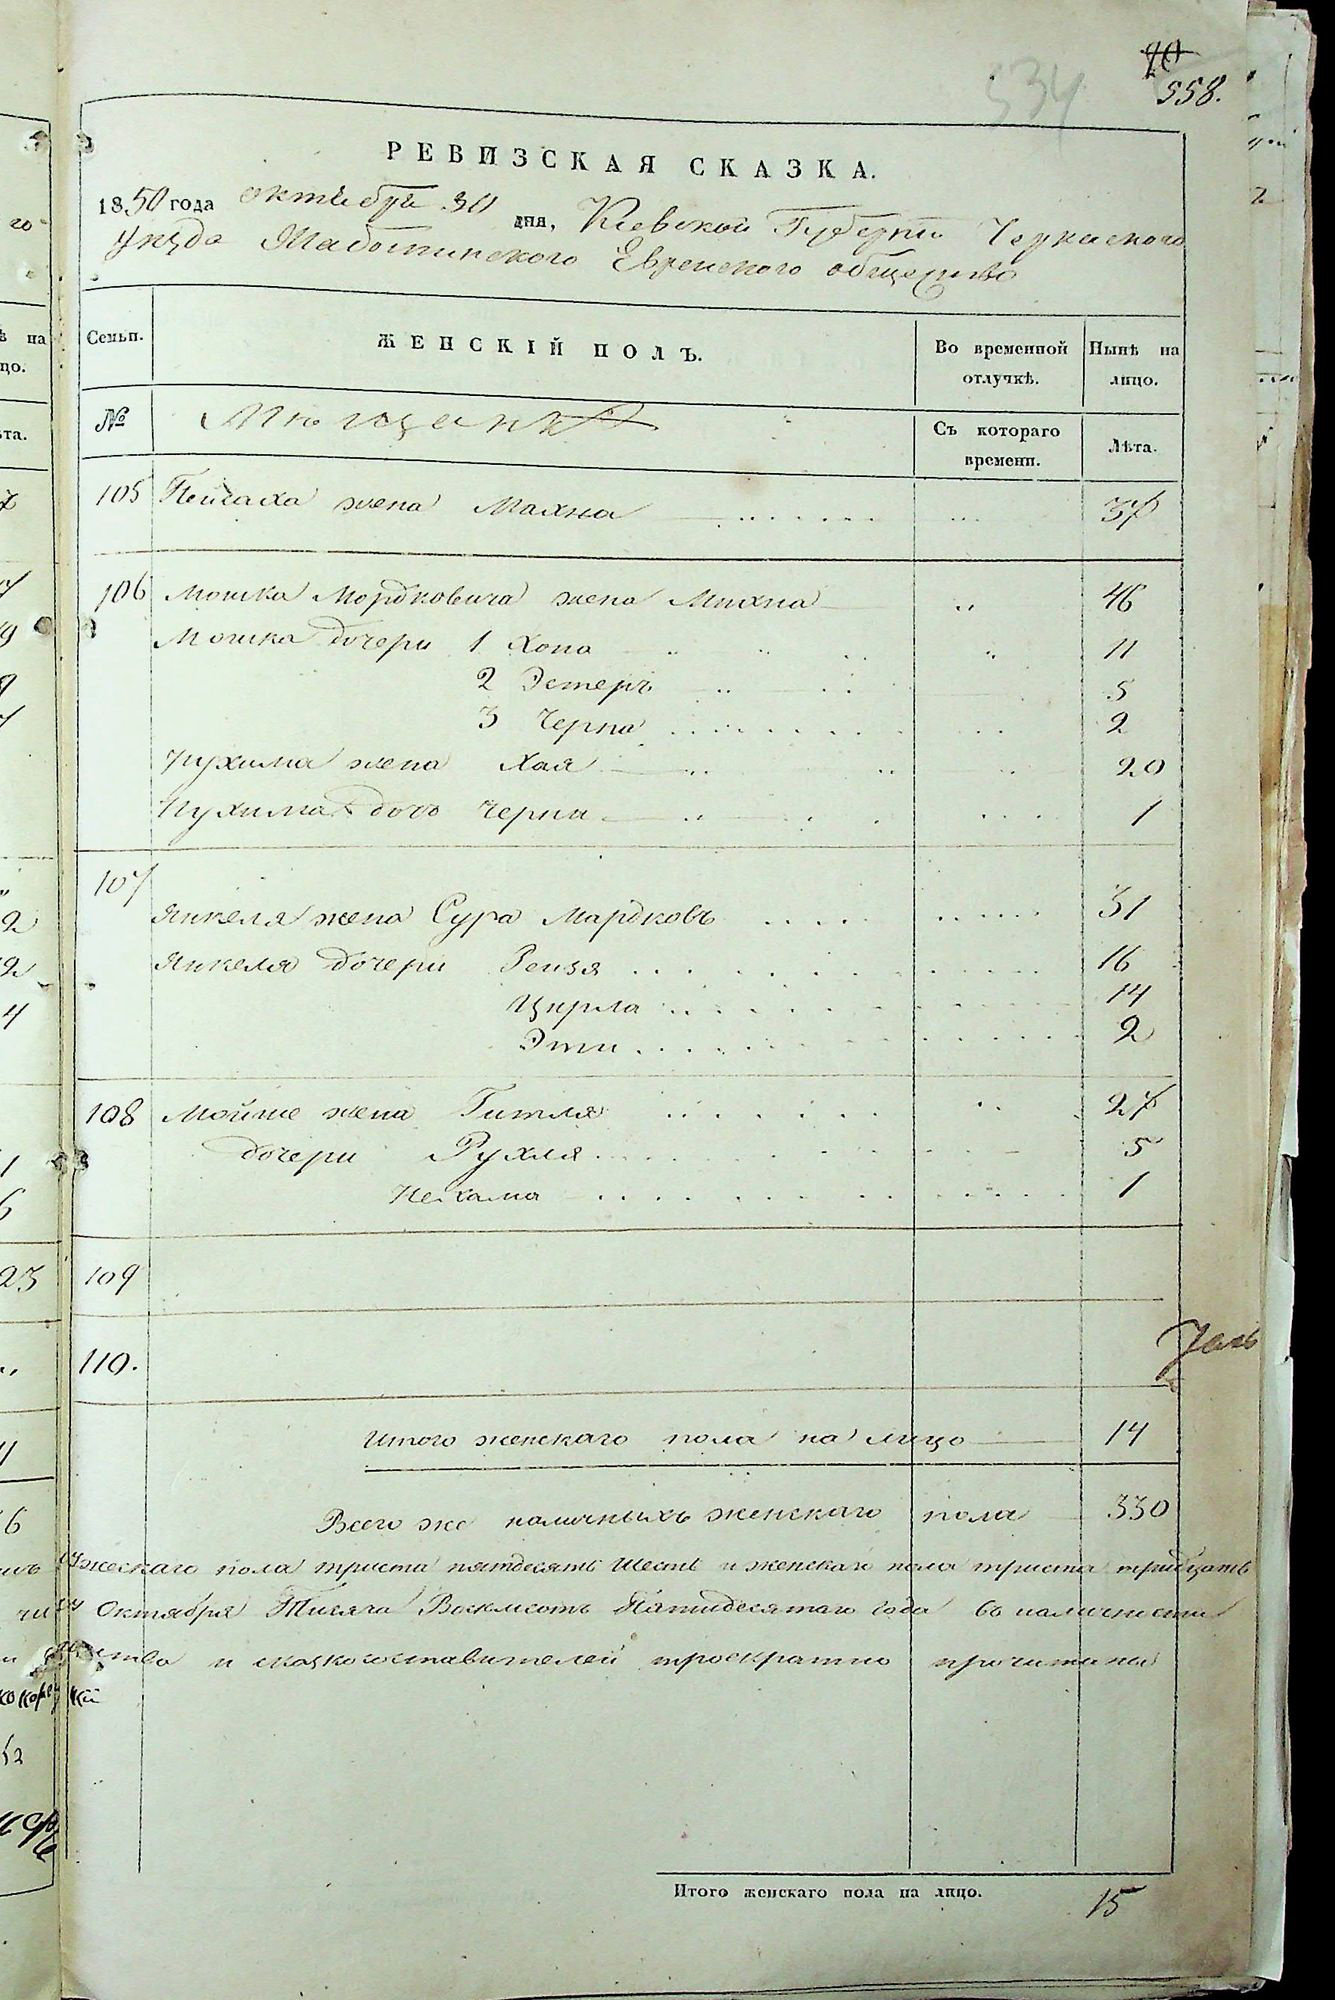 40
558.
534
РЕВИЗСКАЯ СКАЗКА.
1850 года октября 30 дня, Кіевской Губерніи Черкаского
уѣзда Жаботинского Еврейского общества
Семьи. ЖЕНСКІЙ ПОЛЪ. Во временной отлучкѣ. Нынѣ на лицо.
№ Мѣщанъ Съ котораго времени. Лѣта.
105 Пейсаха жена Малка 37
106 Мошка Мордковича жена 46
Мошка дочери 1 Хона 11
2 Эстеръ 5
3 Черна 2
Нухима жена Хая 20
Нухима дочь Черна 1
107
Янкеля жена Сура Мордковъ 31
Янкеля дочери Рейзя 16
Цирла 14
Эти 2
108 Мойше жена Гитля 27
дочери Рухля 5
Нехама 1
109
110.
Итого женскаго пола на лицо 14
Всего же наличныхъ женскаго пола 330
мужескаго пола триста пятдесятъ шесть и женскаго пола триста тридцать
Октября Тысяча Восемсотъ Пятидесятаго года въ наличности
и сказкосоставителей троекратно прочитана
Итого женскаго пола на лицо. 15